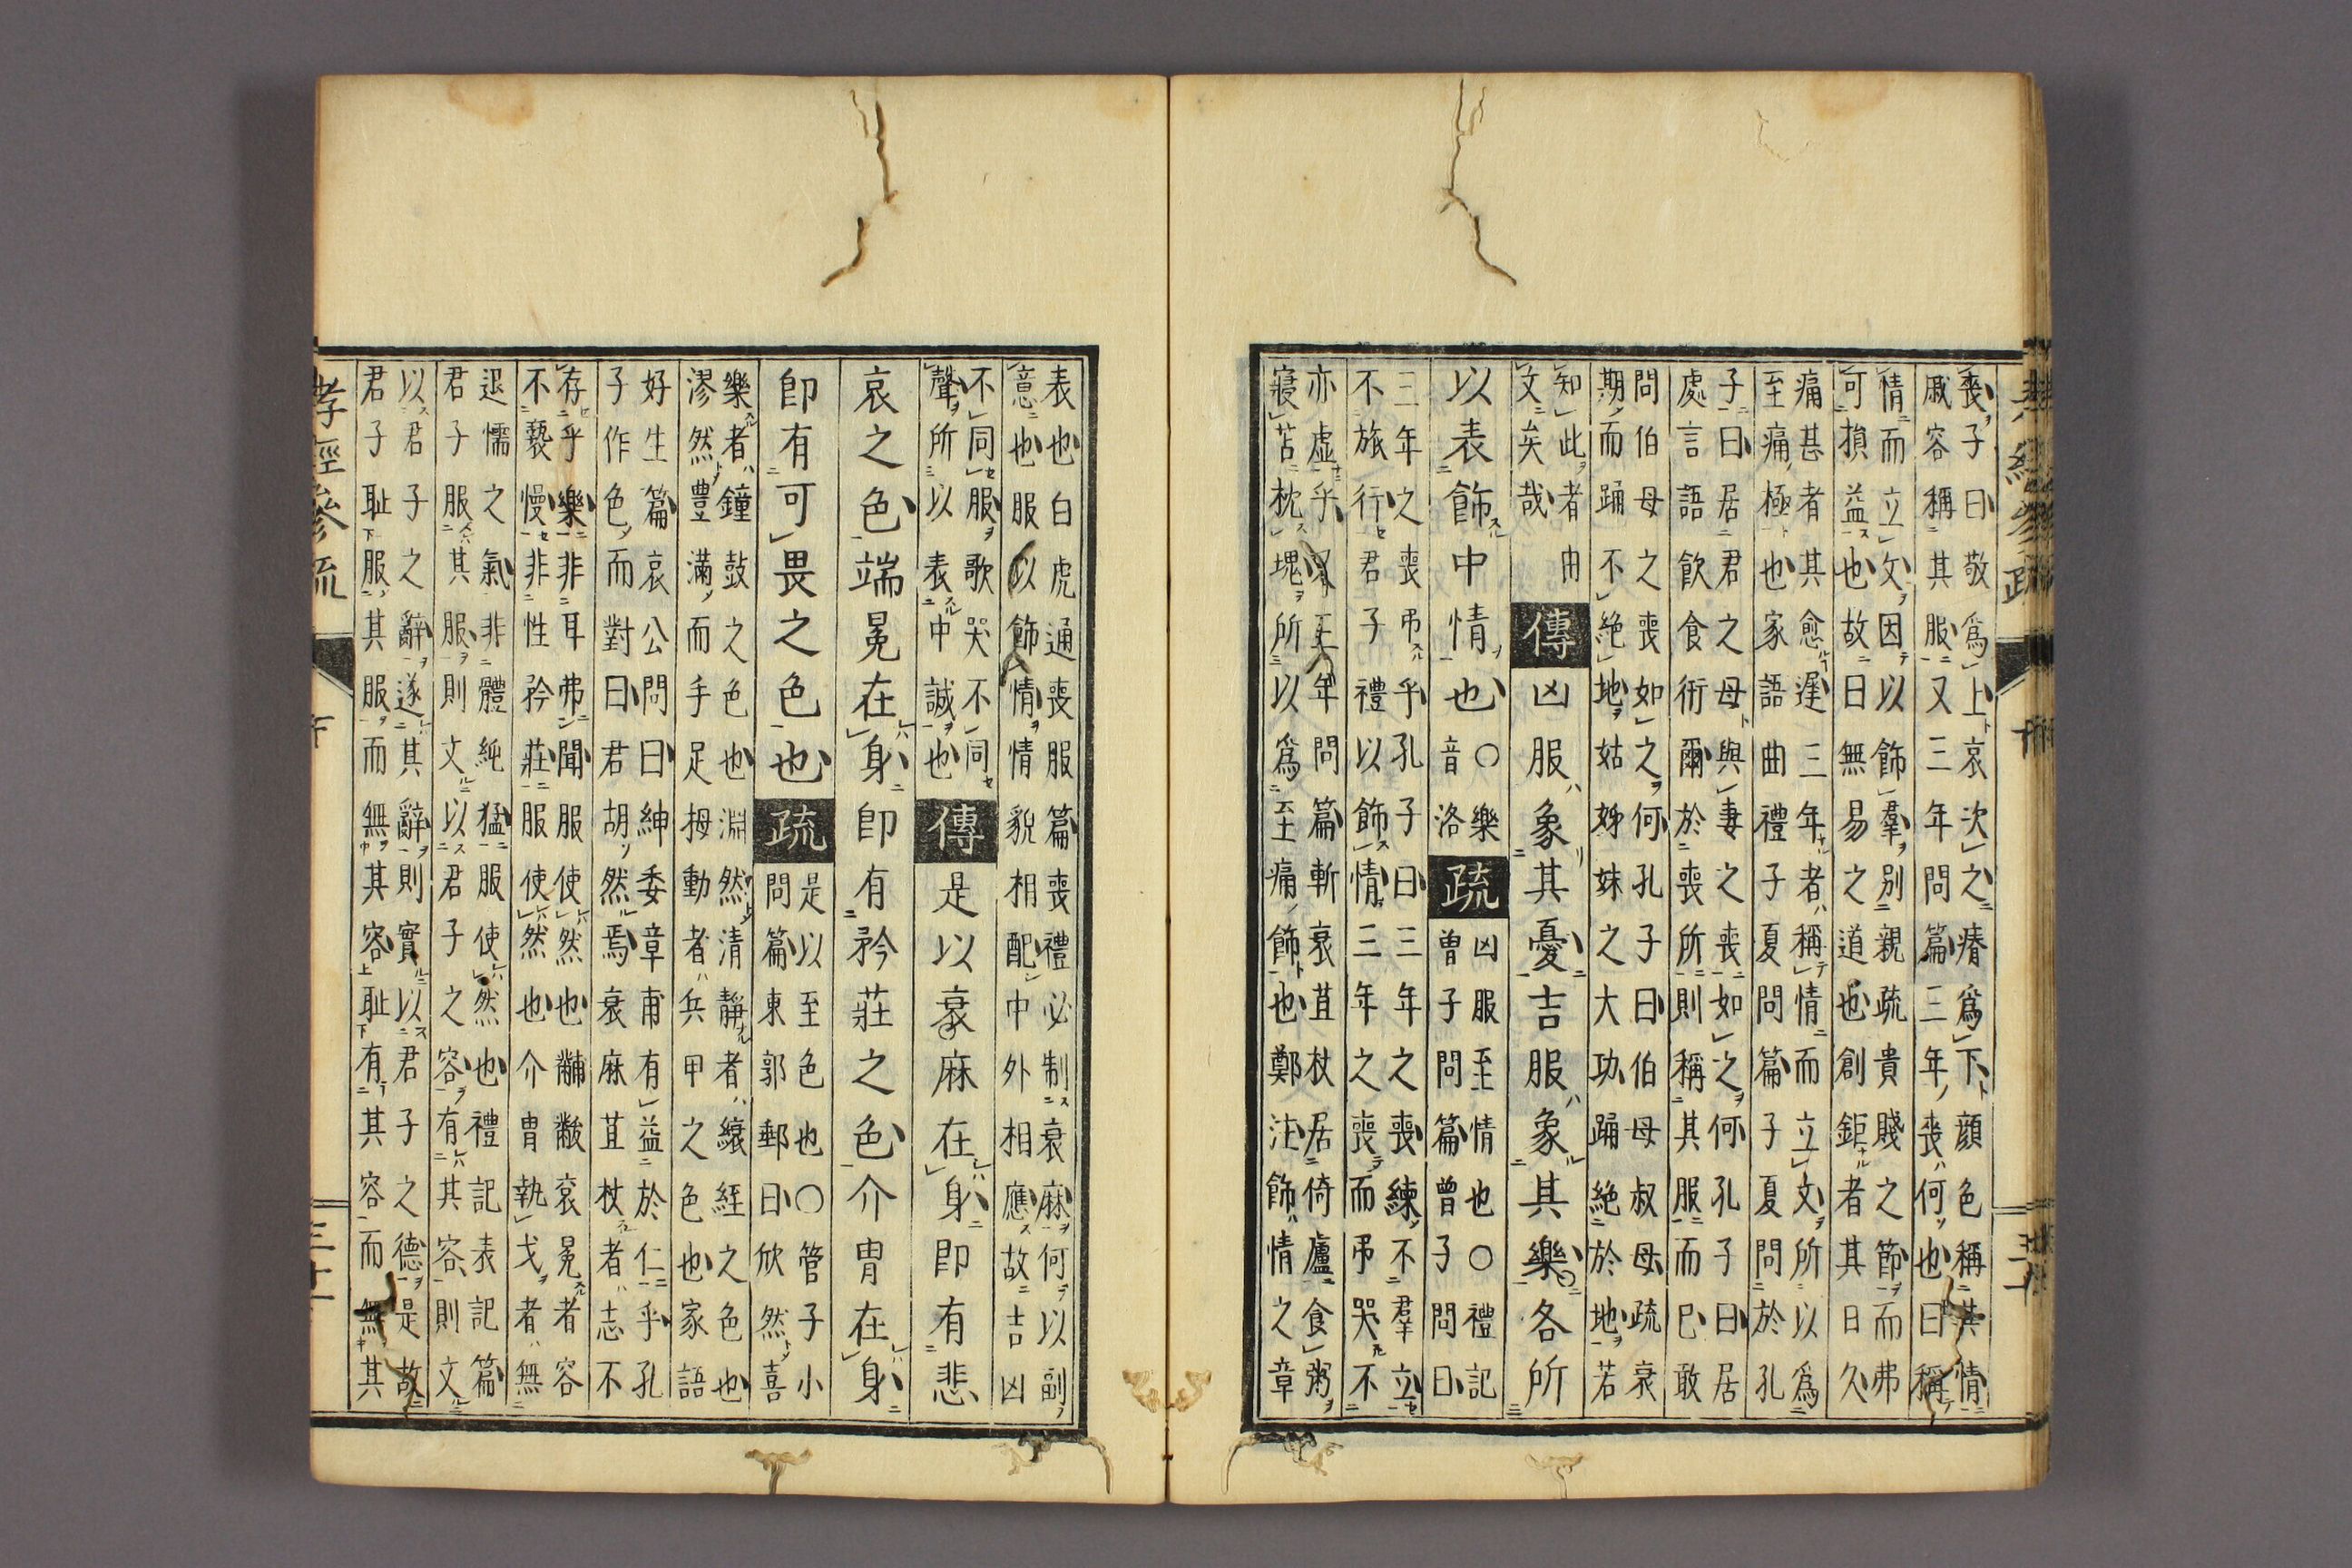 喪子曰敬爲上哀次之瘠爲下顏色稱其情
戚容稱其服又三年問篇三年喪何也曰稱
情而立文因以飾羣別親疏貴賤之節而弗
可損益也故曰無易之道也創鉅者其日久
痛甚者其愈遲三年者稱情而立文所以爲
至痛極也家語曲禮子夏問篇子夏問於孔
子曰居君之母與妻之喪如之何孔子曰居
處言語飲食衎爾於喪所則稱其服而已敢
問伯母之喪如之何孔子曰伯母叔母疏衰
期而踊不絶地姑姊妹之大功踊絶於地若
知此者由
文矣哉
傳凶服象其憂吉服象其樂各所
以表飾中情也
○樂
音洛
疏
凶服至情也○禮記
曾子問篇曾子問曰
三年之喪弔乎孔子曰三年之喪練不羣立
不旅行君子禮以飾情三年之喪而弔哭不
亦虛乎又三年問篇斬衰苴杖居倚廬食粥
寢苫枕塊所以爲至痛飾也鄭注飾情之章
表也白虎通喪服篇喪禮必制衰麻何以副
意也服以飾情情貌相配中外相應故吉凶
不同服歌哭不同
聲所以表中誠也
傳是以衰麻在身即有悲
哀之色端冕在身即有矜莊之色介冑在身
即有可畏之色也
疏
是以至色也○管子小
問篇東郭郵曰欣然喜
樂者鐘鼓之色也淵然清靜者縗絰之色也
漻然豐滿而手足拇動者兵甲之色也家語
好生篇哀公問曰紳委章甫有益於仁乎孔
子作色而對曰君胡然焉衰麻苴杖者志不
存乎樂非耳弗聞服使然也黼黻袞冕者容
不褻慢非性矜莊服使然也介冑執戈者無
退懦之氣非體純猛服使然也禮記表記篇
君子服其服則文以君子之容有其容則文
以君子之辭遂其辭則實以君子之德是故
君子恥服其服而無其容恥有其容而無其
孝經參疏